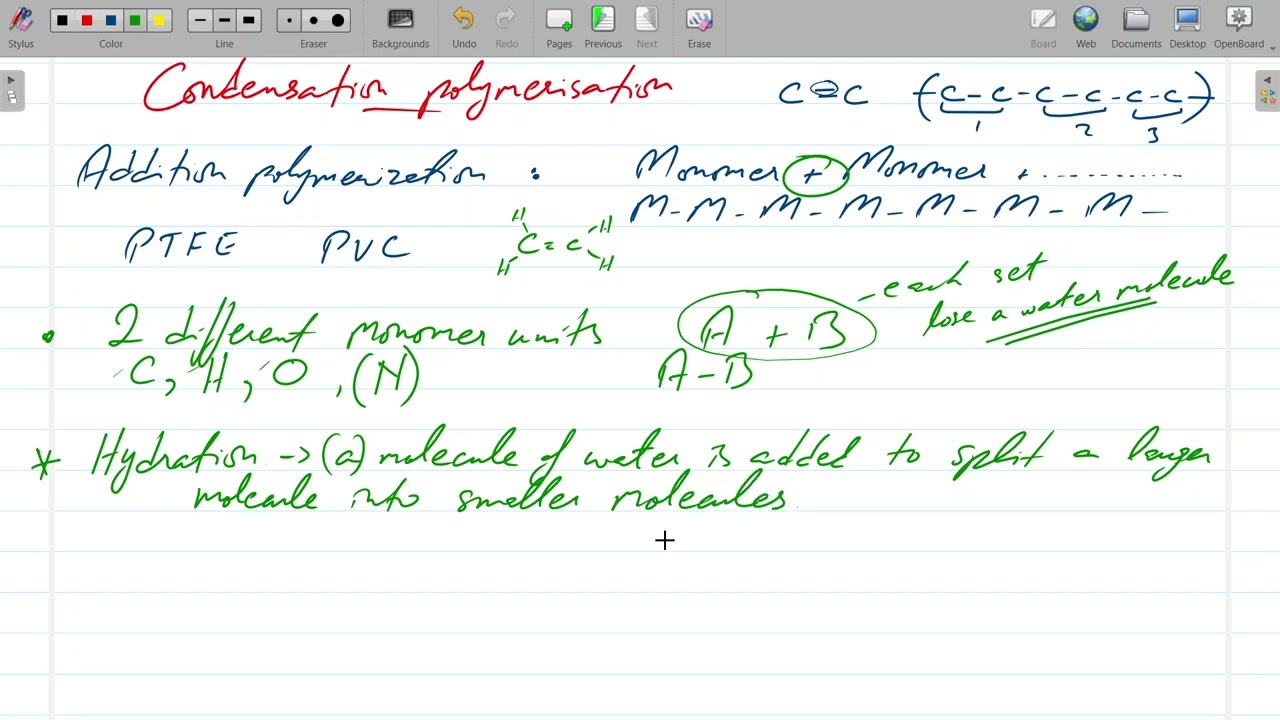 Stylus Color Line Eraser Backgrounds Undo Redo Pages Previous Next Erase Board Web Documents Desktop OpenBoard
Condensation polymerisation C=C (C-C-C-C-C-C)
1 2 3
Addition polymerization : Monomer + Monomer + ............
M-M-M-M-M-M-M-
PTFE PVC
H H
C=C
H H
each set
lose a water molecule
• 2 different monomer units A + B
C, H, O, (N) A-B
* Hydration -> (a) molecule of water is added to split a larger
molecule into smaller molecules.